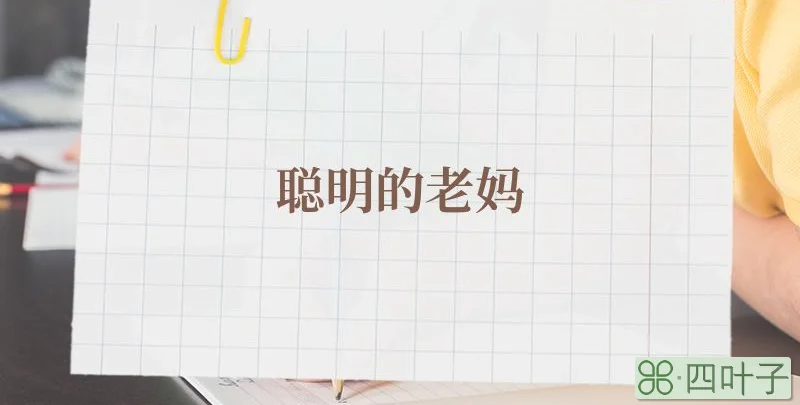 聪明的老妈
四叶子